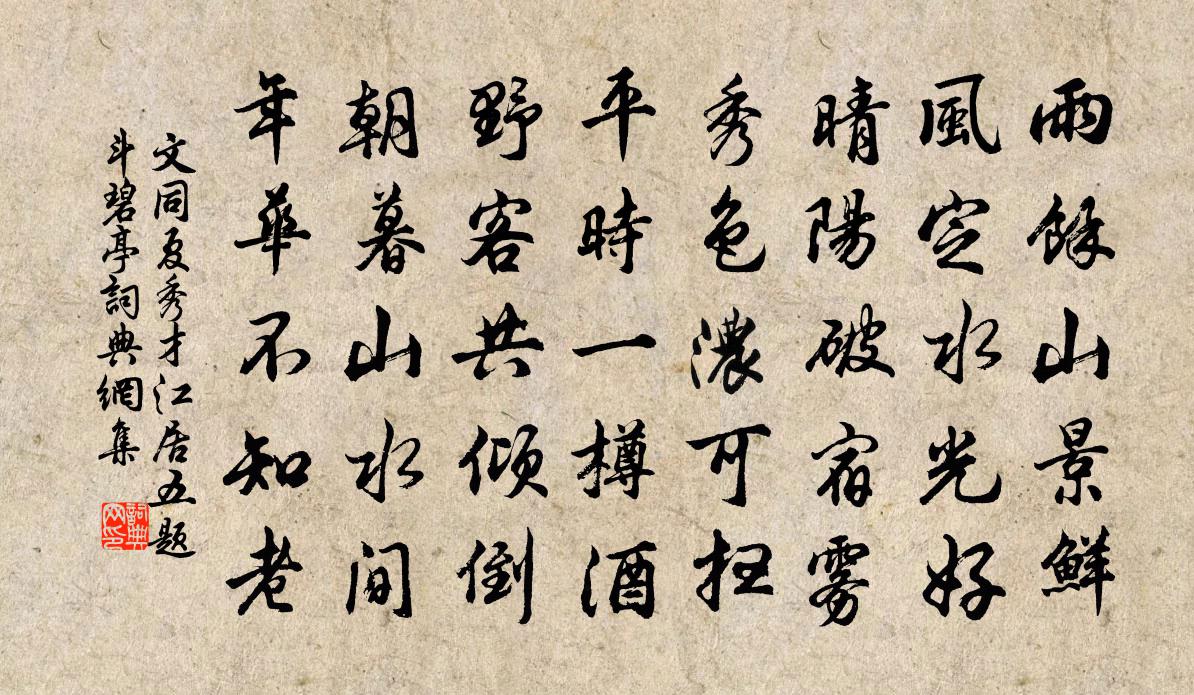 雨餘山景鮮
風定水光好
晴陽破宿雾
秀色濃可抂
平時一樽酒
野客共傾倒
朝暮山水間
年華不知老
文同夏秀才江居五題
斗碧亭詞典網集
詞典網印